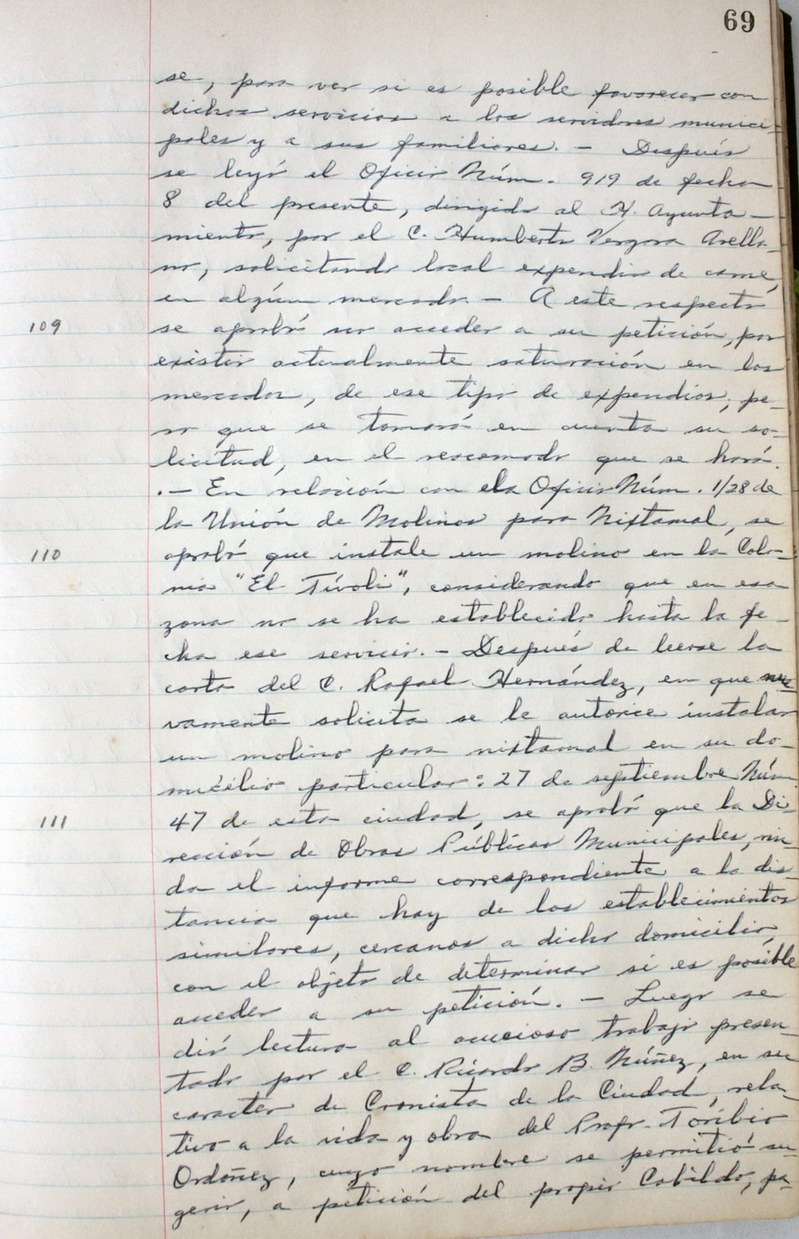 69
se, para ver si es posible favorecer con
dichos servicios a los servidores munici-
pales y a sus familiares. — Después
se leyó el Oficio Núm. 919 de fecha
8 del presente, dirigido al H. Ayunta-
miento, por el C. Humberto Vergara Arella-
no, solicitando local expendio de carne,
en algún mercado. — A este respecto
109 se aprobó no acceder a su petición, por
existir actualmente saturación en los
mercados, de ese tipo de expendios, pe-
ro que se tomará en cuenta su so-
licitud, en el reacomodo que se hará.
.— En relación con el Oficio Núm. 1/28 de
la Unión de Molinos para Nixtamal, se
110 aprobó que instale un molino en la Colo-
nia "El Tívoli", considerando que en esa
zona no se ha establecido hasta la fe-
cha ese servicio. — Después de leerse la
carta del C. Rafael Hernández, en que nue-
vamente solicita se le autorice instalar
un molino para nixtamal en su do-
micilio particular: 27 de septiembre Núm.
111 47 de esta ciudad, se aprobó que la Di-
rección de Obras Públicas Municipales, rin-
da el informe correspondiente a la dis-
tancia que hay de los establecimientos
similares, cercanos a dicho domicilio,
con el objeto de determinar si es posible
acceder a su petición. — Luego se
dió lectura al acucioso trabajo presen-
tado por el C. Ricardo B. Núñez, en su
caracter de Cronista de la Ciudad, rela-
tivo a la vida y obra del Profr. Toribio
Ordóñez, cuyo nombre se permitió su-
gerir, a petición del propio Cabildo, pa-